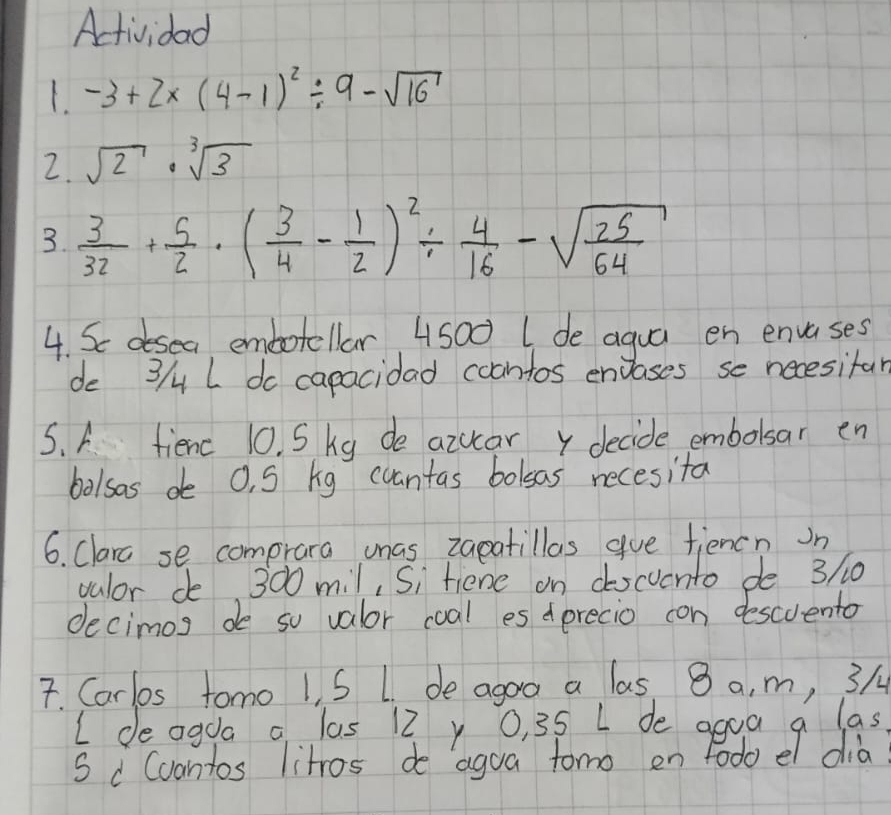 Actividad
1. -3+2×(4-1)² ÷ 9 - √16
2. √2 · ∛3
3. 3/32 + 5/2 · (3/4 - 1/2)² ÷ 4/16 - √(25/64)
4. Se desea embotellar 4500 L de agua en envases
de 3/4 L de capacidad cuantos envases se necesitan
5. A tiene 10.5 kg de azucar y decide embolsar en
bolsas de 0,5 kg cuantas bolsas necesita
6. Clara se comprara unas zapatillas que tienen un
valor de 300 mil, Si tiene un descuento de 3/10
decimos de su valor cual es el precio con descuento
7. Carlos tomo 1,5 L. de agua a las 8 a,m, 3/4
L de agua a las 12 y 0,35 L de agua a las
5 ¿ Cuantos litros de agua tomo en todo el día?